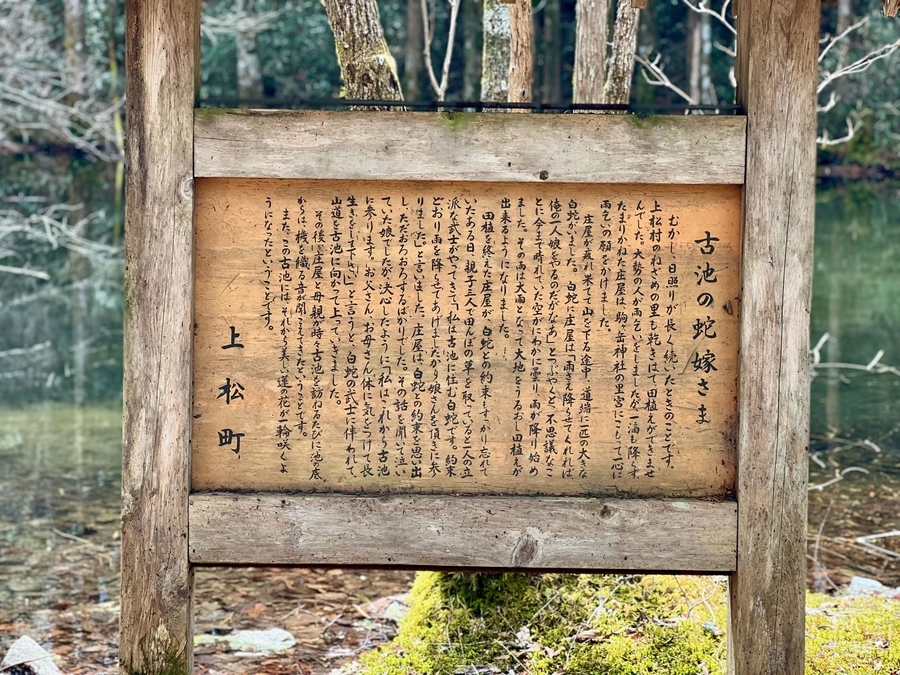 古池の蛇嫁さま
むかし、日照りが長く続いたときのことです。
上松村のねざめの里も乾きはて、田植えができませ
んでした。大勢の人が雨乞いをしましたが、一滴も降らず、
たまりかねた庄屋は、駒ヶ岳神社の里宮にこもって一心に
雨乞いの願をかけました。
庄屋が疲れ果てて山を下る途中、道端に一匹の大きな
白蛇がいました。白蛇に庄屋は「雨さえ降らせてくれれば、
俺の一人娘をやるのだがなあ」とつぶやくと、不思議なこ
とに今まで晴れていた空がにわかに曇り、雨が降り始め
ました。その雨は大雨となって大地をうるおし田植えが
出来るようになりました。
田植を終えた庄屋が、白蛇との約束もすっかり忘れて
いたある日、親子三人で田んぼの草を取っていると一人の立
派な武士がやってきて、「私は古池に住む白蛇です。約束
どおり雨を降らせてあげましたから娘さんを頂きに参
りました。」と言いました。庄屋は、白蛇との約束を思い出
しただおろおろするばかりでした。その話を聞いて泣い
ていた娘でしたが、決心したように「私は、これから古池
に参ります。お父さん、お母さん、体に気をつけて長
生きをして下さい」と言うと、白蛇の武士に伴われて、
山道を古池に向かって上っていきました。
その後、庄屋と母親が時々古池を訪ねるたびに池の底
からは機を織る音が聞こえてきたということです。
また、この古池には、それから美しい蓮の花が一輪咲くよ
うになったということです。
上松町